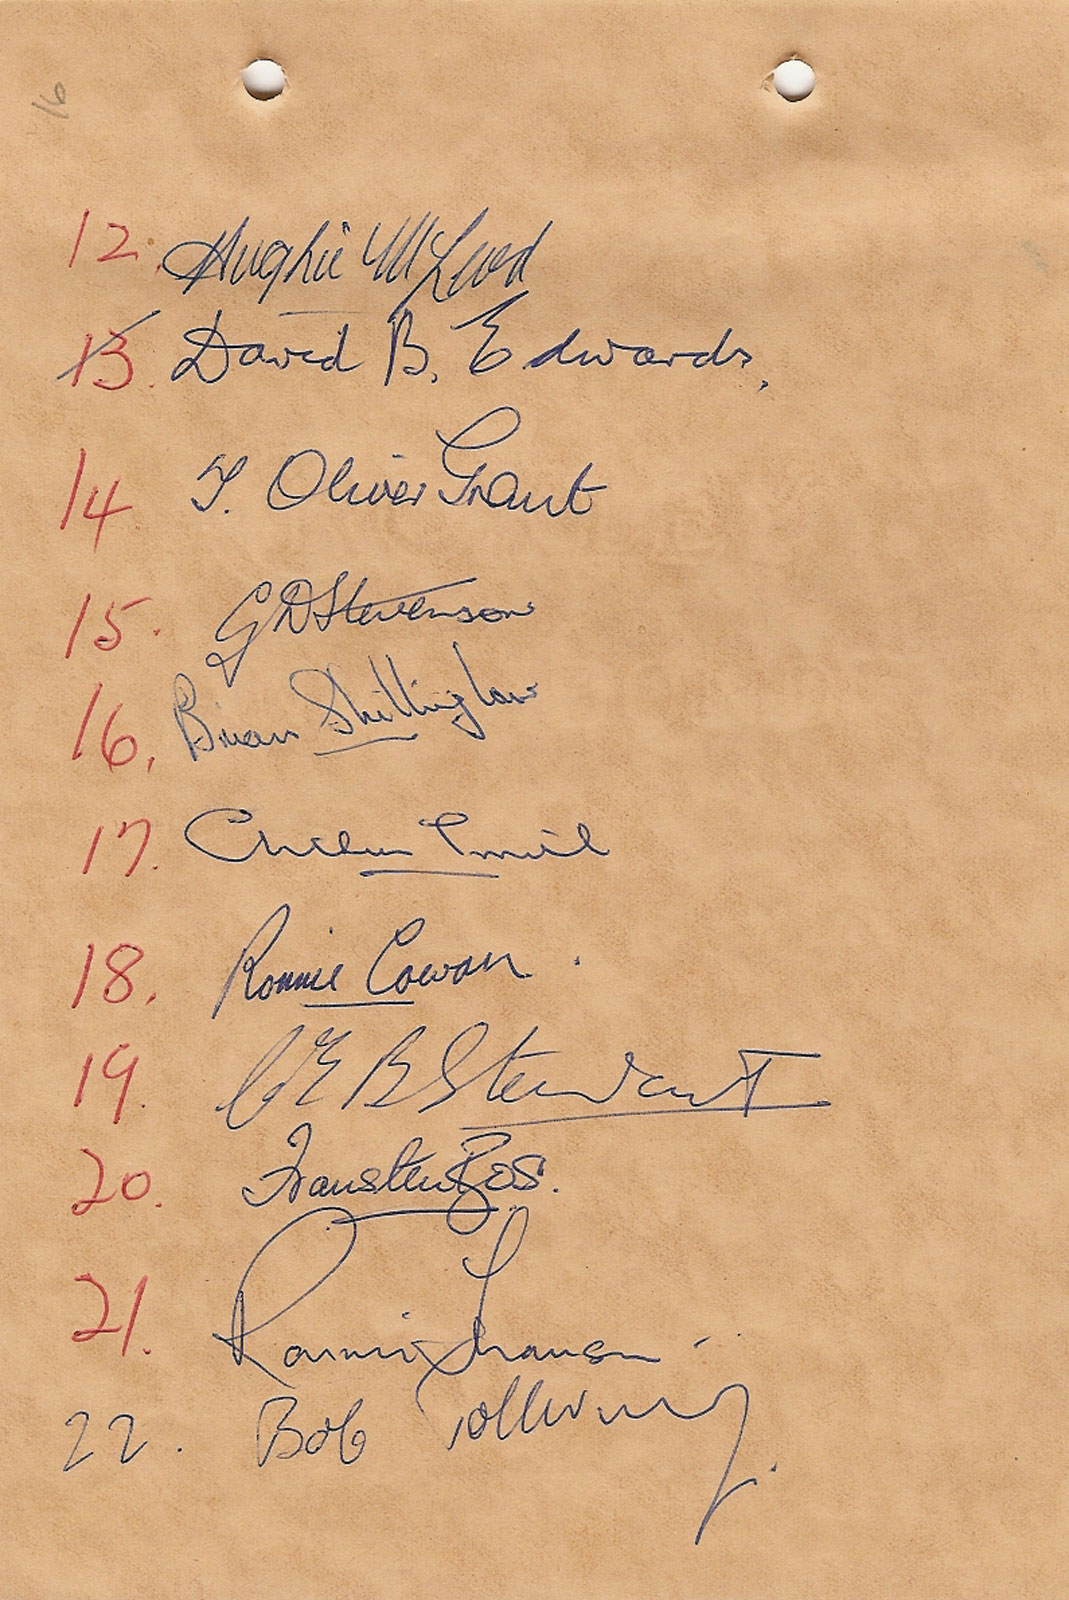 16
12. Hughie McLeod
13. David B. Edwards.
14 T. Oliver Grant
15. G D Stevenson
16. Brian Shillinglaw
17.
18. Ronnie Cowan.
19. C E B Stewart
20. Frans ten Bos.
21. Ronnie Thomson
22. Bob